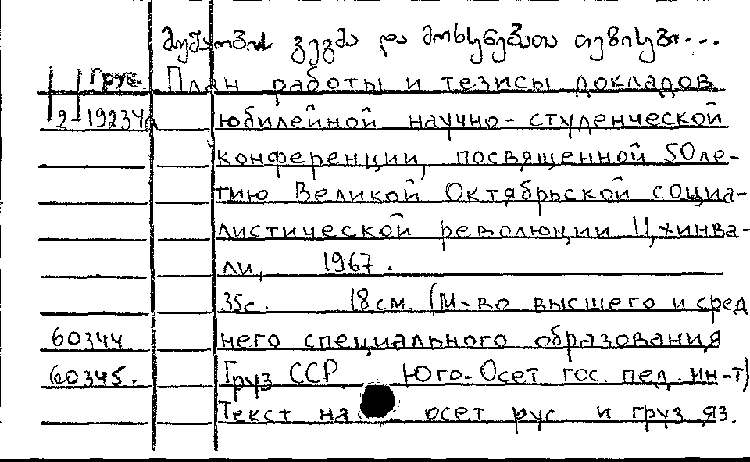 მუშაობის გეგმა და მოხსენებათა თეზისები...
Груз. План работы и тезисы докладов
2-19234 юбилейной научно-студенческой
конференции, посвященной 50ле-
тию Великой Октябрьской социа-
листической революции Цхинва-
ли, 1967.
35с. 18см. (М-во высшего и сред
60344 него специального образования
60345. Груз ССР. Юго-Осет гос. пед. ин-т)
Текст на осет рус и груз яз.